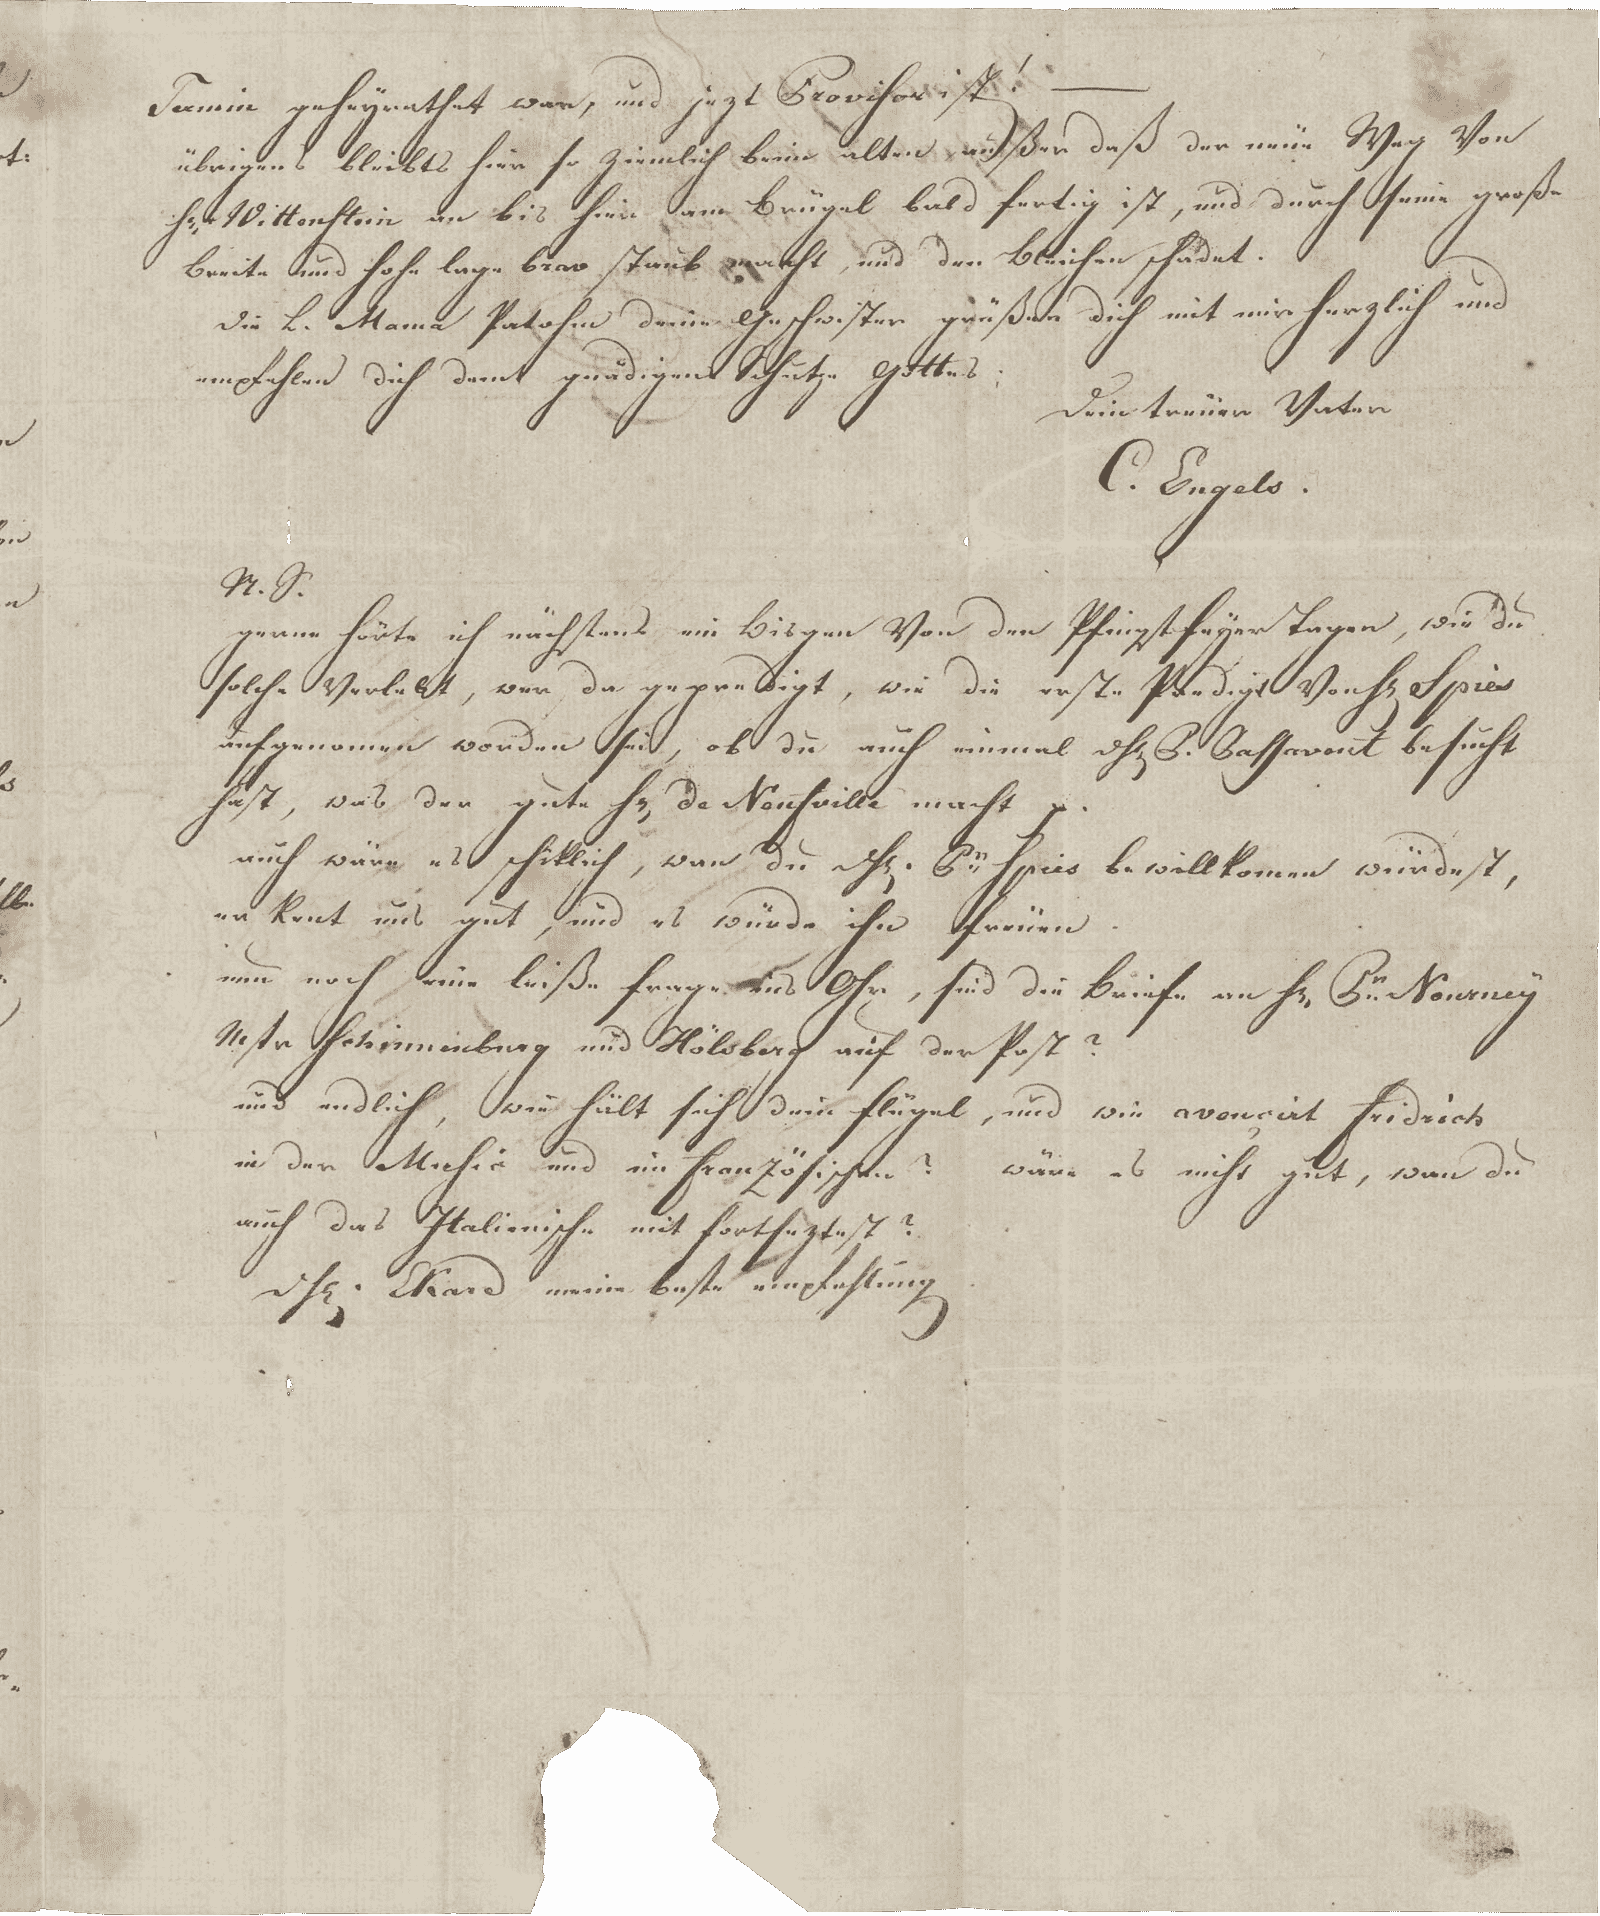 Termin geheyrathet war, und jezt Provisor ist! —
übrigens bleibts hier so ziemlich beim alten außer daß der neue Weg Von
Hr. Wittenstein an bis hier am Brügel bald fertig ist, und durch seine große
breite und hohe lage brav staub macht, und den bleichen schadet.
die l. Mama Patohm deine Geschwister grüßen dich mit mir herzlich und
empfehlen dich dem gnädigen Schutze Gottes;
dein treuer Vater
C. Engels.
N. S.
gerne hörte ich nächstens ein bisgen Von den Pfingstfeyer tagen, wie du
solche Verlebt, wer da gepredigt, wie die erste Predigt Von Hr Spies
aufgenomen worden sei, ob du auch einmal dHr P. Passavent besucht
hast, was der gute Hr de Neufville macht p.
auch wäre es schiklich, wan du dHr. Pr. Spies bewillkomen würdest,
er kent uns gut, und es würde ihn freuen.
nun noch eine leiße frage ins Ohr, sind die briefe an Hr. Pr. Nourney
Mstr Schinnenburg und Hölsberg auf der Post?
und endlich, wie hält sich dein flügel, und wie avençirt Fridrich
in der Musik und im französischen? wäre es nicht gut, wan du
auch das Italienische mit fortseztest?
dHr. Ekard meine beste empfehlung